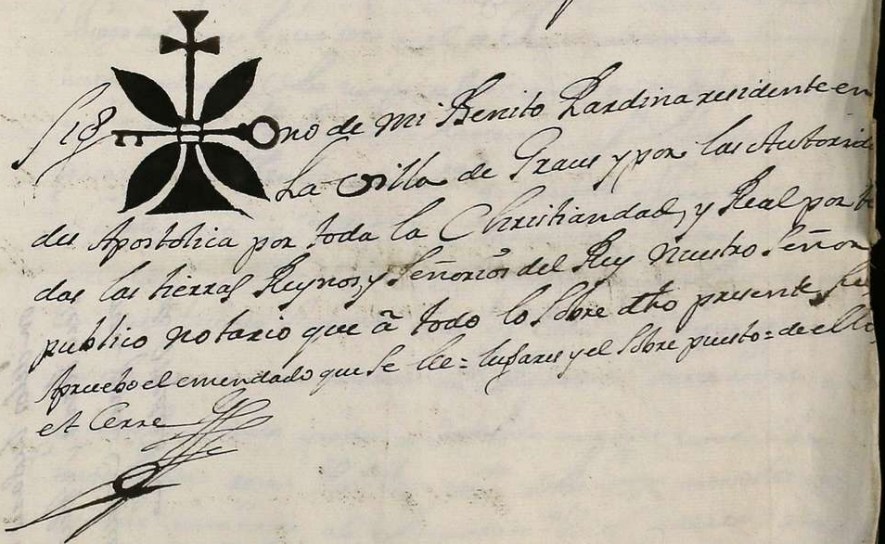 Sig no de mi Benito Pardina residente en
la Villa de Graus y por las Autorida
des Apostolica por toda la Christiandad, y Real por to
das las tierras Reynos, y Señorios del Rey Nuestro Señor
publico notario que â todo lo sobre dho presente fui
Apruebo el emendado que se lee = lugares y el sobre puesto = de ello
et Cerre